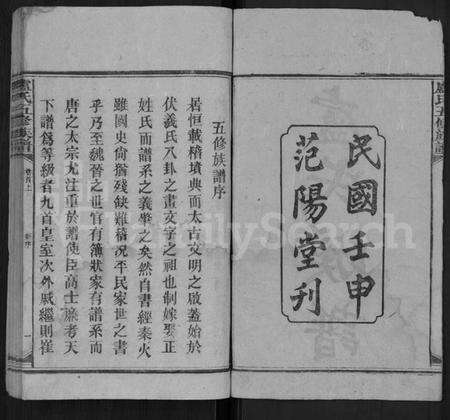 民國壬申
范陽堂刊
五修族譜序
居恒載稽墳典而太古文明之啟蓋始於
伏羲氏八卦之畫文字之祖也制嫁娶正
姓氏而譜系之義肇之矣然自書經秦火
雖國史尙猶殘缺難稽况平民家世之書
乎乃至魏晉之世官有簿狀家有譜系而
唐之太宗尤注重於譜使臣高士廉考天
下譜爲等級者九首皇室次外戚繼則崔
盧氏五修族譜
卷首上
序
一
盧氏五修族譜
FamilySearch